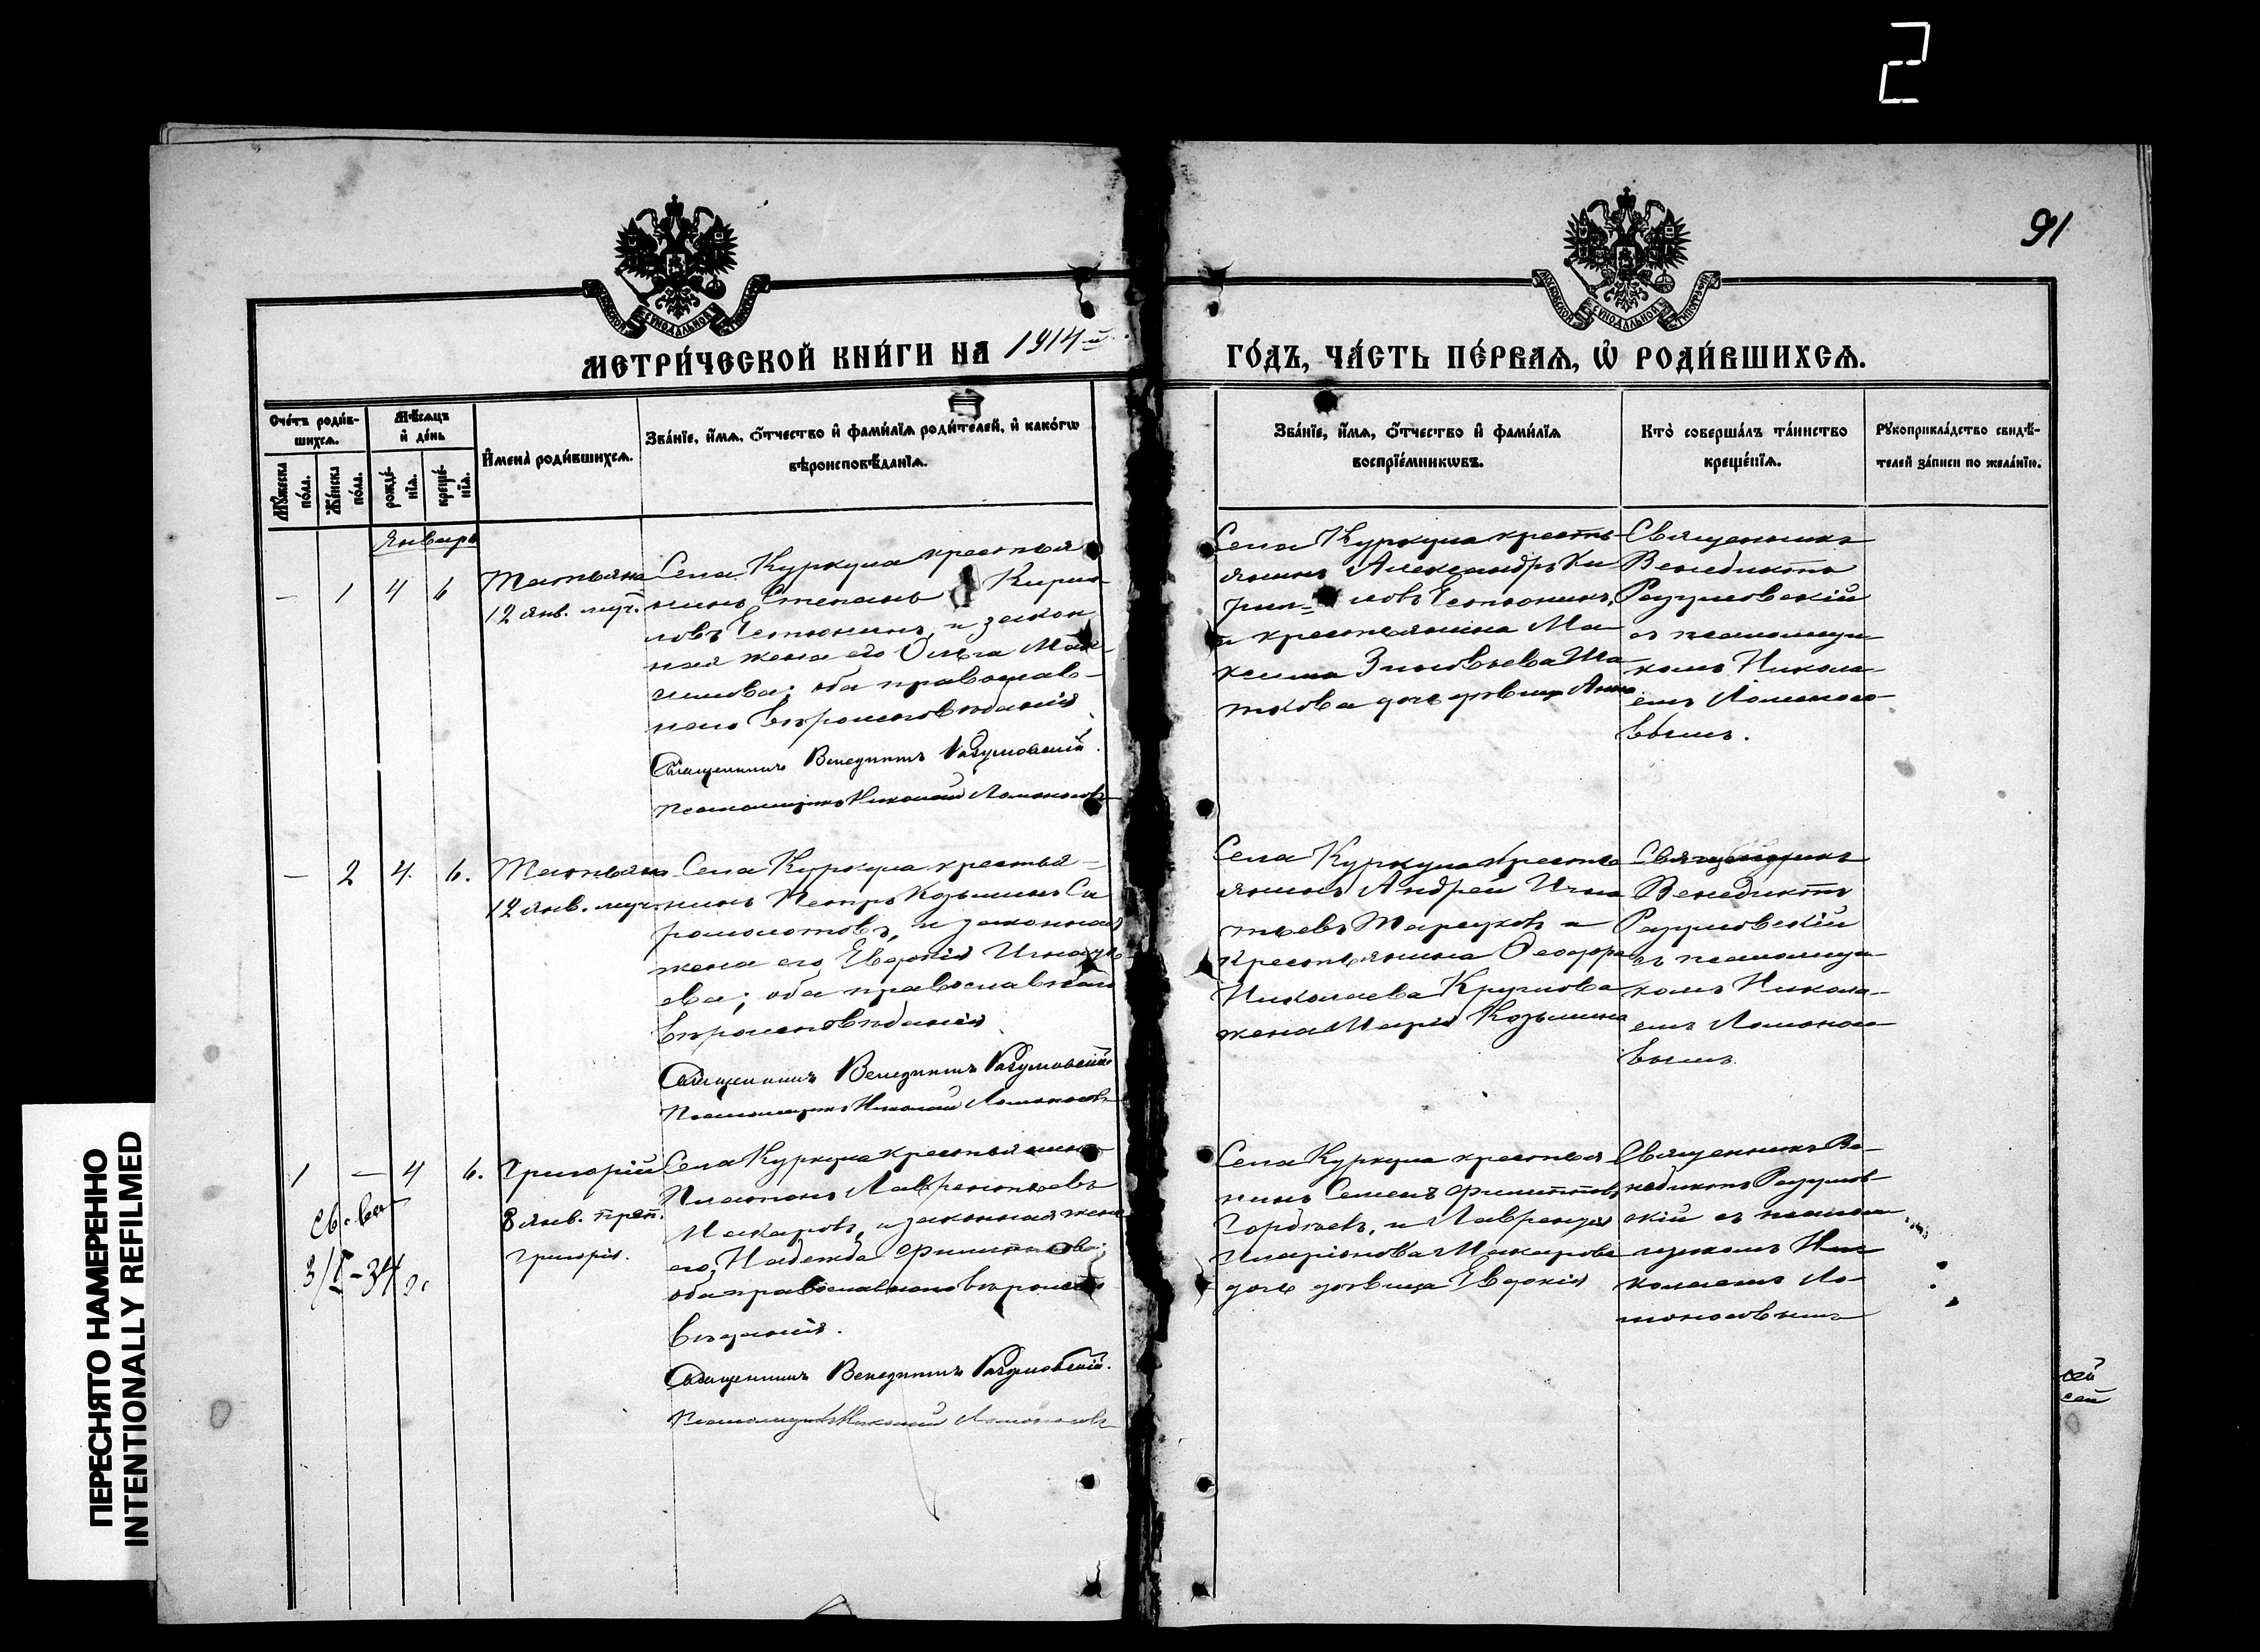 2
91
МЕТРИ́ЧЕСКОЙ КНИ́ГИ НА 1914-й
ГО́ДЪ, ЧА́СТЬ ПЕ́РВАѦ, Ѡ҆ РОДИ́ВШИХСѦ.
Сче́тъ роди́в-
шихсѧ.
Мѣ́сѧцъ
и҆ де́нь
Мꙋ́жеска
по́ла.
Же́нска
по́ла.
рожде́-
нїѧ.
креще́-
нїѧ.
И҆мена̀ роди́вшихсѧ.
Зва́нїе, и҆́мѧ, ѻ҆́тчество и҆ фами́лїѧ роди́телей, и҆ како́гѡ
вѣроисповѣ́данїѧ.
Зва́нїе, и҆́мѧ, ѻ҆́тчество и҆ фами́лїѧ
воспрїе́мникѡвъ.
Кто̀ соверша́лъ та́инство
креще́нїѧ.
Рꙋкоприкла́дство свидѣ́-
телей за́писи по жела́нїю.
Январь
— 1 4 6
Татьяна
12 янв. муч.
Села Куркула крестья
нинъ Степанъ Кирил
ловъ и закон
ная жена его Ольга Мак
симова; оба православ-
наго вѣроисповѣданія
Священникъ Венедиктъ Разумовскій.
Псаломщикъ Николай Ломоносовъ
Села Куркула кресть
янинъ Александръ Ки
рил=ловъ
и крестьянина Ма
ксима Зиновьева
дочь дѣвица
Священникъ
Венедиктъ
Разумовскій
съ псаломщи
комъ Никола-
емъ Ломоносо-
вымъ.
— 2 4. 6.
Татьяна
12 янв. муч.
Села Куркула крестья=
нинъ Петръ Козьминъ
и законная
жена его Евдокія Игнатье
ва; оба православнаго
вѣроисповѣданія
Священникъ Венедиктъ Разумовскій
Псаломщикъ Николай Ломоносовъ
Села Куркула кресть
янинъ Андрей Игна
тьевъ и
крестьянина Ѳеодора
Николаева Круглова
жена Марія Козьмина
Священникъ
Венедиктъ
Разумовскій
съ псаломщи
комъ Никола-
емъ Ломоносо
вымъ.
1 — 4 6.
Григорій
8 янв. преп.
Григорія.
3/I-34 г.
Села Куркула крестьянинъ
Платонъ Лаврентьевъ
Макаровъ, и законная жена
его, Надежда Филиппова;
оба православнаго вѣроиспо
вѣданія.
Священникъ Венедиктъ Разумовскій.
Псаломщикъ Николай Ломоносовъ
Села Куркула крестья
нинъ Семенъ Филипповъ
Гордѣевъ, и Лаврентія
Иларіонова Макарова
дочь дѣвица Евдокія
Священникъ Ве-
недиктъ Разумов-
скій съ псалом
щикомъ Ни
колаемъ Ло-
моносовымъ
ПЕРЕСНЯТО НАМЕРЕННО
INTENTIONALLY REFILMED